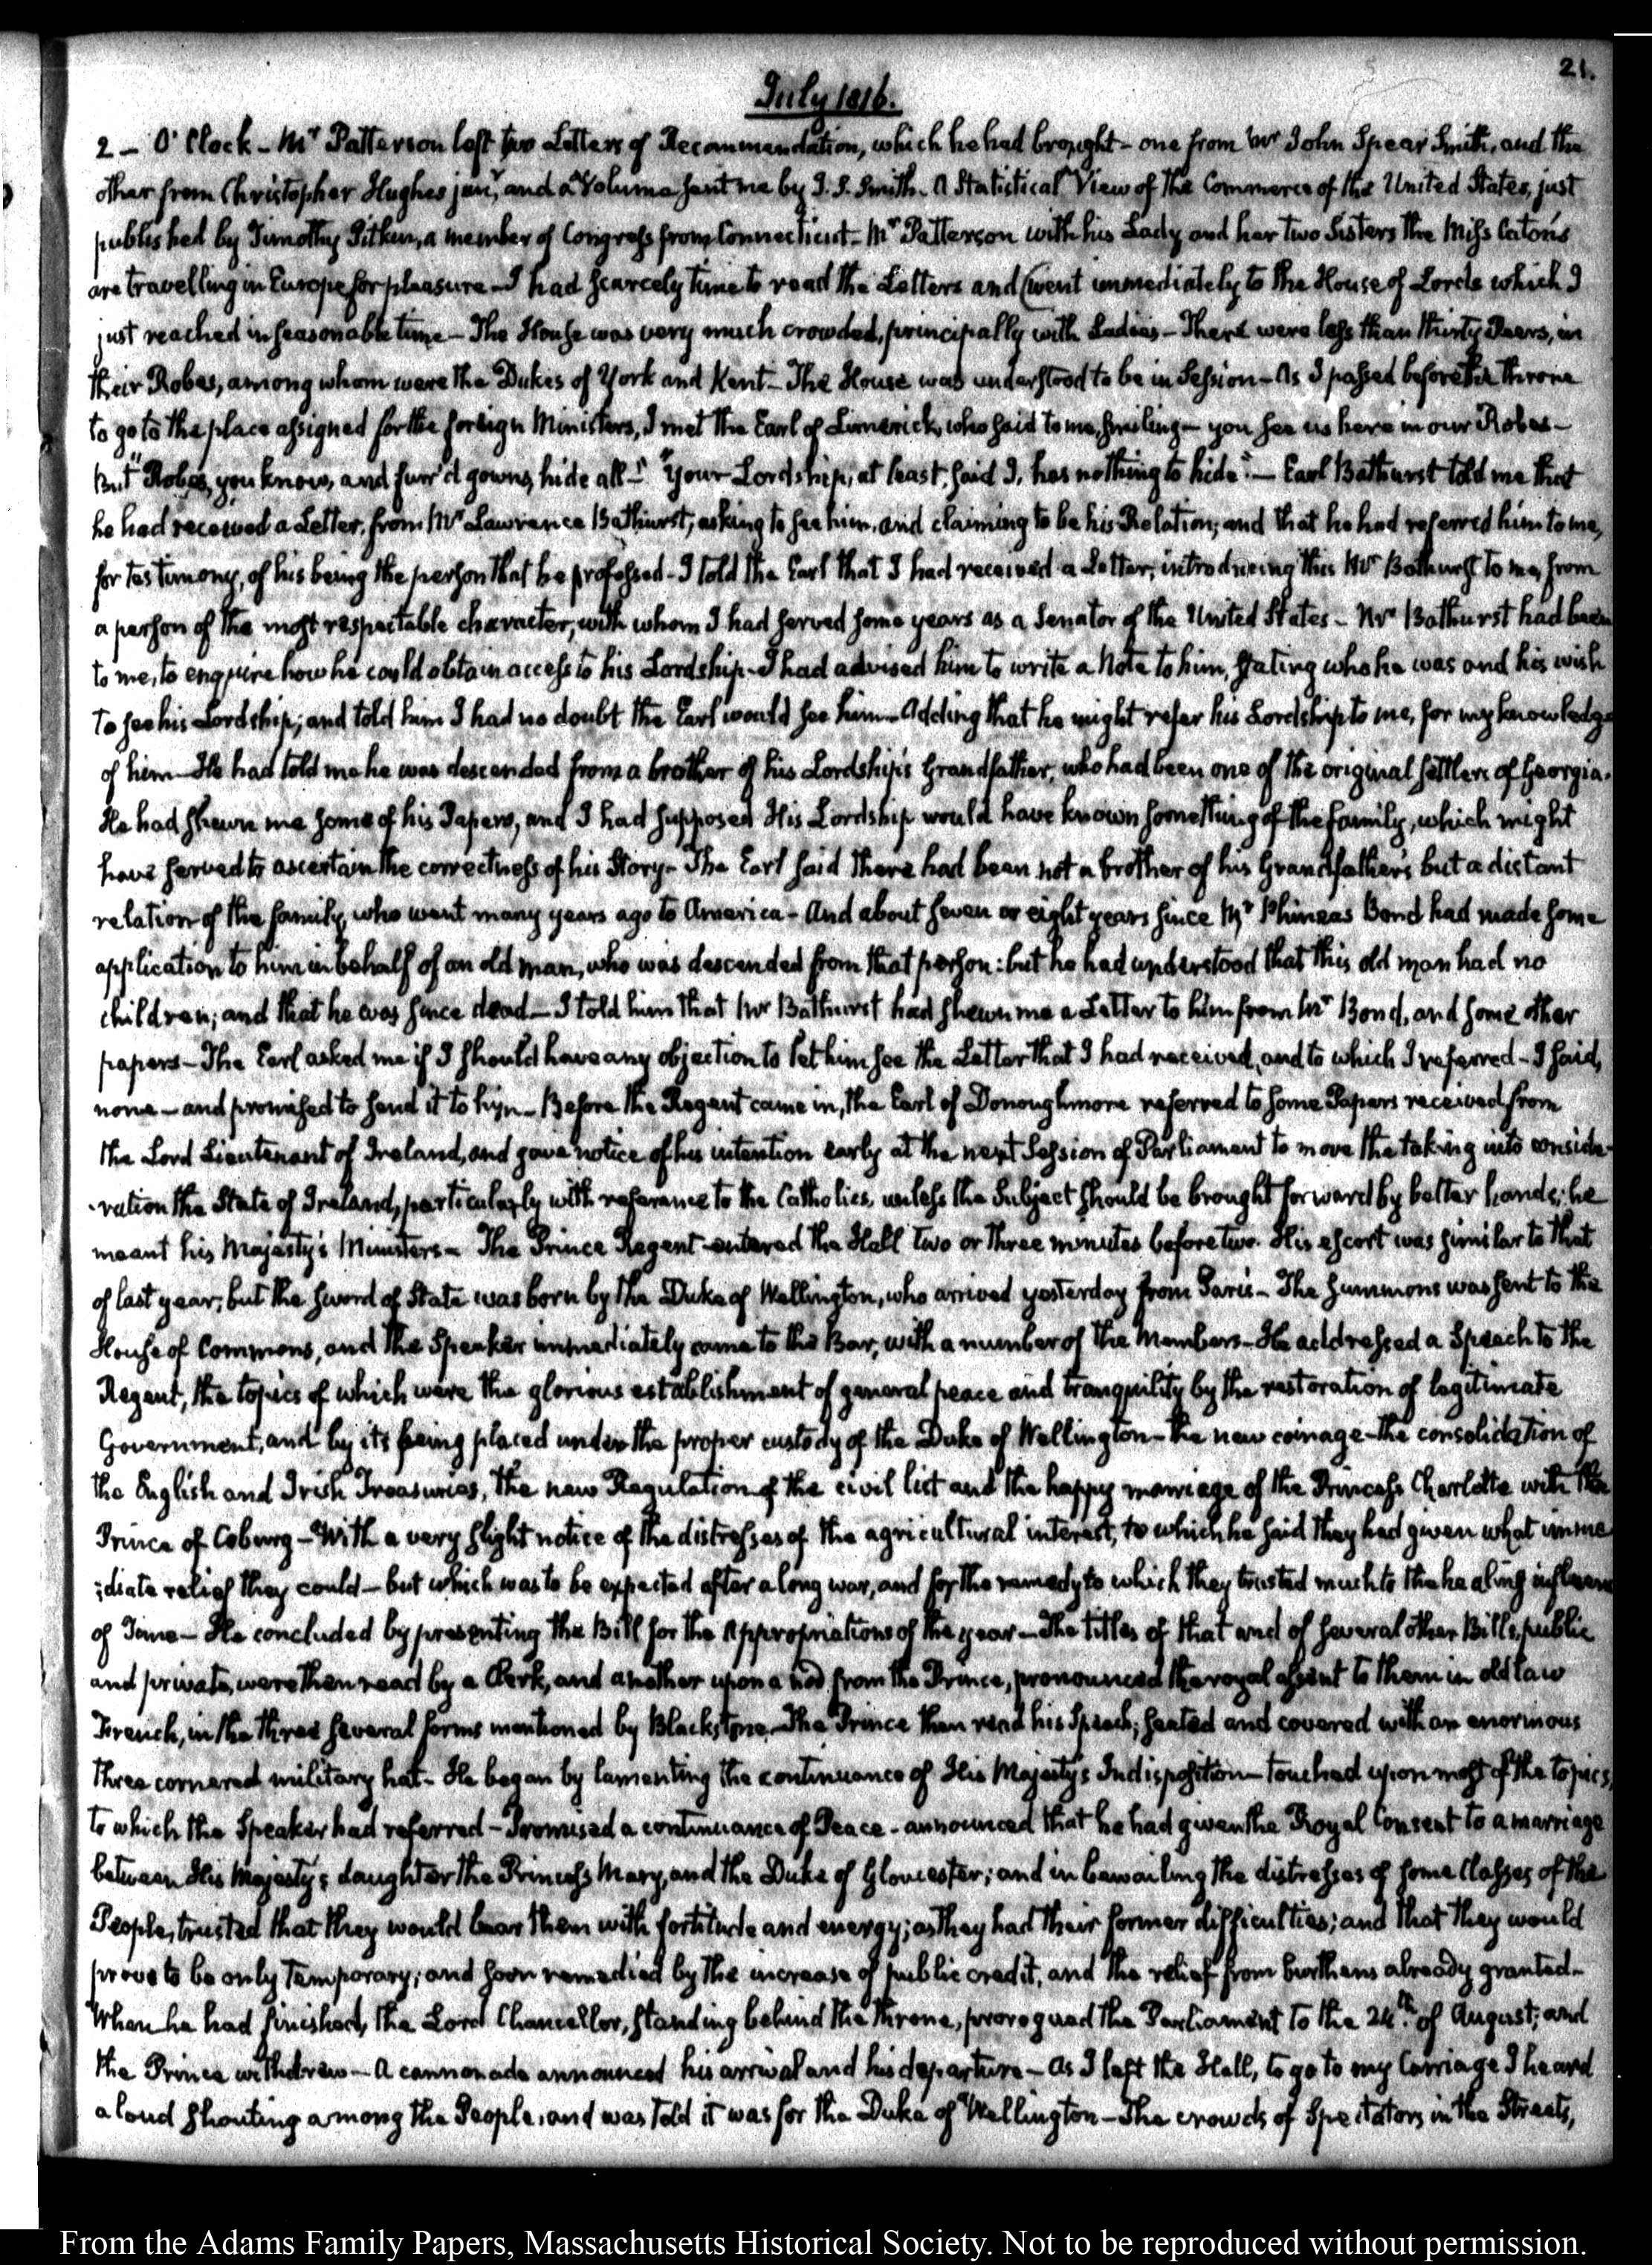 21.
July 1816.
2 – O'Clock – Mr Patterson left two Letters of Recommendation, which he had brought – one from Mr John Spear Smith, and the
other from Christopher Hughes junr, and a Volume sent me by J. S. Smith – A Statistical View of the Commerce of the United States, just
published by Timothy Pitkin, a member of Congress from Connecticut – Mr Patterson with his Lady and her two Sisters the Miss Caton's
are travelling in Europe for pleasure – I had scarcely time to read the Letters and went immediately to the House of Lords which I
just reached in seasonable time – The House was very much crowded, principally with Ladies – There were less than thirty Peers, in
their Robes, among whom were the Dukes of York and Kent – The House was understood to be in Session – As I passed before the throne
to go to the place assigned for the foreign Ministers, I met the Earl of Limerick, who said to me, smiling – you see us here in our Robes –
But "Robes, you know, and furr'd gowns, hide all –" "Your Lordship, at least, said I, has nothing to hide" – Earl Bathurst told me that
he had received a Letter, from Mr Lawrence Bathurst, asking to see him, and claiming to be his Relation; and that he had referred him to me,
for testimony, of his being the person that he professed – I told the Earl that I had received a Letter, introducing this Mr Bathurst to me, from
a person of the most respectable character, with whom I had served some years as a Senator of the United States – Mr Bathurst had been
to me, to enquire how he could obtain access to his Lordship – I had advised him to write a Note to him, stating who he was and his wish
to see his Lordship; and told him I had no doubt the Earl would see him – Adding that he might refer his Lordship to me, for my knowledge
of him – He had told me he was descended from a brother of his Lordship's Grandfather, who had been one of the original settlers of Georgia.
He had shewn me some of his Papers, and I had supposed His Lordship would have known something of the family, which might
have served to ascertain the correctness of his Story – The Earl said there had been not a brother of his Grandfather's but a distant
relation of the family, who went many years ago to America – And about seven or eight years since Mr Phineas Bond had made some
application to him in behalf of an old man, who was descended from that person: but he had understood that this old man had no
children; and that he was since dead – I told him that Mr Bathurst had shewn me a Letter to him from Mr Bond, and some other
papers – The Earl asked me if I should have any objection to let him see the Letter that I had received, and to which I referred – I said,
none – and promised to send it to him – Before the Regent came in, the Earl of Donoughmore referred to some Papers received from
the Lord Lieutenant of Ireland, and gave notice of his intention early at the next Session of Parliament to move the taking into conside-
-ration the State of Ireland, particularly with reference to the Catholics, unless the Subject should be brought forward by better hands; he
meant his Majesty's Ministers – The Prince Regent entered the Hall two or three minutes before two. His escort was similar to that
of last year; but the sword of State was born by the Duke of Wellington, who arrived yesterday from Paris – The Summons was sent to the
House of Commons, and the Speaker immediately came to the Bar, with a number of the Members – He addressed a Speech to the
Regent, the topics of which were the glorious establishment of general peace and tranquility by the restoration of legitimate
Government, and by its being placed under the proper custody of the Duke of Wellington – the new coinage – the consolidation of
the English and Irish Treasuries, the new Regulation of the civil list and the happy marriage of the Princess Charlotte with the
Prince of Coburg – With a very slight notice of the distresses of the agricultural interest, to which he said they had given what imme
:diate relief they could – but which was to be expected after a long war, and for the remedy to which they trusted much to the healing influence
of Time – He concluded by presenting the Bill for the Appropriations of the year – The titles of that and of several other Bills, public
and private, were then read by a Clerk, and another upon a nod from the Prince, pronounced the royal assent to them in old law
French, in the three several forms mentioned by Blackstone – The Prince then read his Speech; seated and covered with an enormous
three cornered military hat – He began by lamenting the continuance of His Majesty's Indisposition – touched upon most of the topics,
to which the Speaker had referred – Promised a continuance of Peace – announced that he had given the Royal Consent to a marriage
between His Majesty's daughter the Princess Mary, and the Duke of Gloucester; and in bewailing the distresses of some Classes of the
People, trusted that they would bear them with fortitude and energy; as they had their former difficulties; and that they would
prove to be only temporary; and soon remedied by the increase of public credit, and the relief from burthens already granted –
When he had finished, the Lord Chancellor, standing behind the throne, prorogued the Parliament to the 24th of August; and
the Prince withdrew – A cannonade announced his arrival and his departure – As I left the Hall, to go to my Carriage I heard
a loud shouting among the People, and was told it was for the Duke of Wellington – The crowds of Spectators in the Streets,
From the Adams Family Papers, Massachusetts Historical Society. Not to be reproduced without permission.